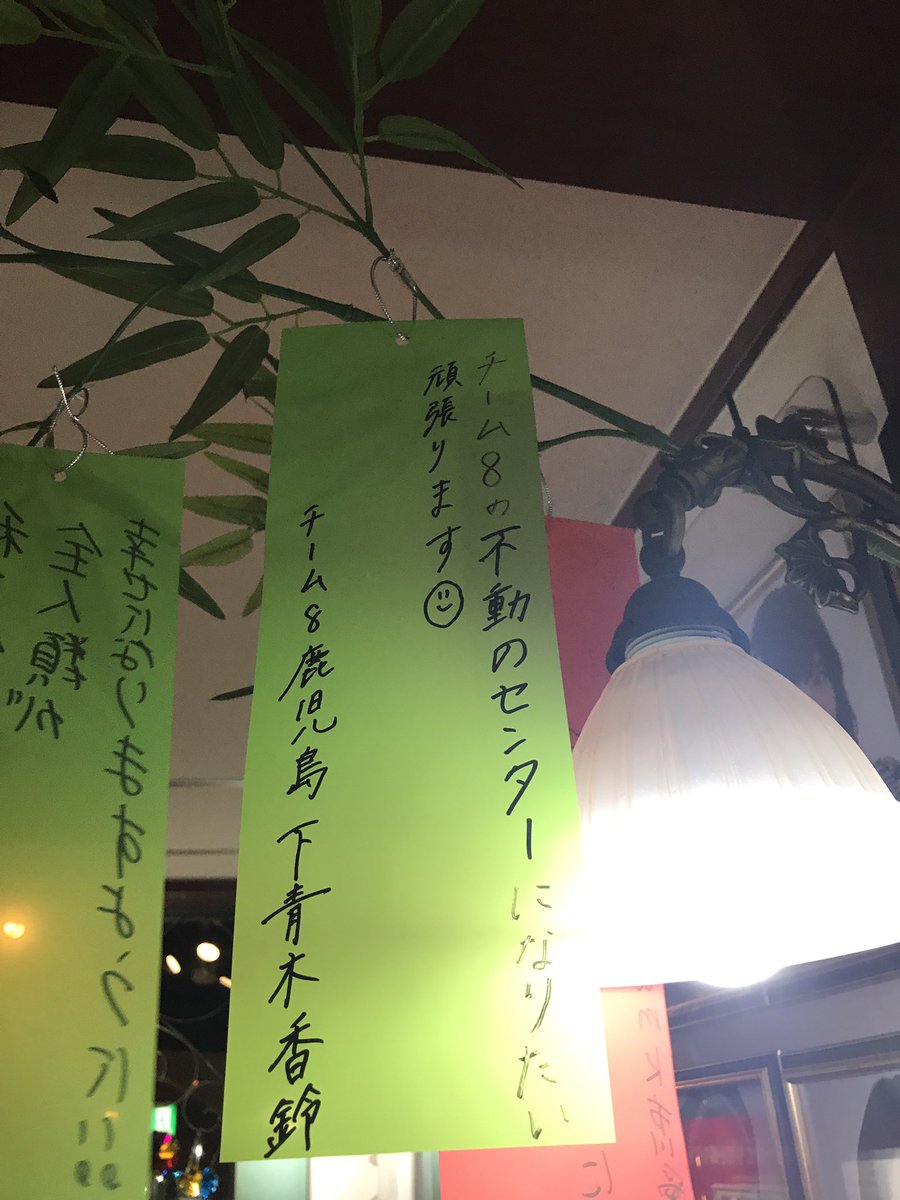 チーム8の不動のセンターになりたい
頑張ります☺
チーム8鹿児島 下青木香鈴
全人類が
幸せになりますように!!